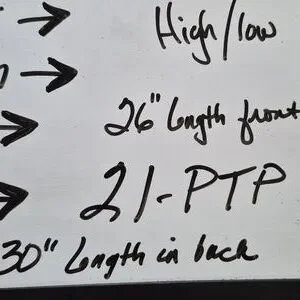 → High/low
→
→ 26" length front
→ 21-PTP
30" length in back